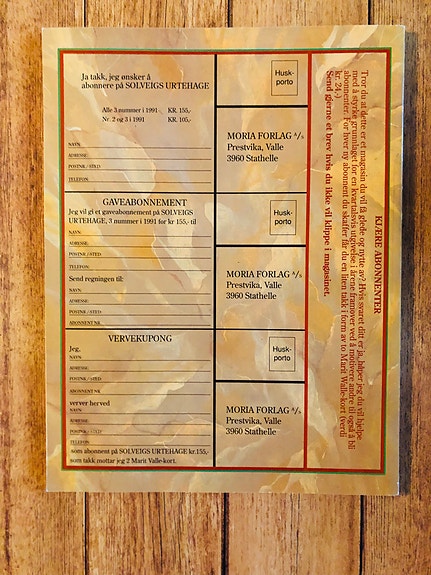 Ja takk, jeg ønsker å
abonnere på SOLVEIGS URTEHAGE
Alle 3 nummer i 1991 KR. 155,-
Nr. 2 og 3 i 1991 KR. 105,-
NAVN:
ADRESSE:
POSTNR./STED:
TELEFON:
Husk-
porto
MORIA FORLAG A/S
Prestvika, Valle
3960 Stathelle
GAVEABONNEMENT
Jeg vil gi et gaveabonnement på SOLVEIGS
URTEHAGE, 3 nummer i 1991 for kr 155,- til
NAVN:
ADRESSE:
POSTNR./STED:
TELEFON:
Send regningen til:
NAVN:
ADRESSE:
POSTNR./STED:
ABONNENT NR.
Husk-
porto
MORIA FORLAG A/S
Prestvika, Valle
3960 Stathelle
VERVEKUPONG
Jeg,
NAVN:
ADRESSE:
POSTNR./STED:
ABONNENT NR.
verver herved
NAVN:
ADRESSE:
POSTNR./STED:
TELEFON:
som abonnent på SOLVEIGS URTEHAGE kr.155,-
som takk mottar jeg 2 Marit Valle-kort.
Husk-
porto
MORIA FORLAG A/S
Prestvika, Valle
3960 Stathelle
KJÆRE ABONNENTER
Tror du at dette er et magasin du vil få glede og nytte av? Hvis svaret ditt er ja, håper jeg du vil hjelpe
med å styrke grunnlaget for en kvartalsvis utgivelse i årene framover ved å motivere andre til også å bli
abonnenter. For hver ny abonnent du skaffer får du en liten takk i form av to Marit Walle-kort (verdi
kr. 24,-)
Send gjerne et brev hvis du ikke vil klippe i magasinet.